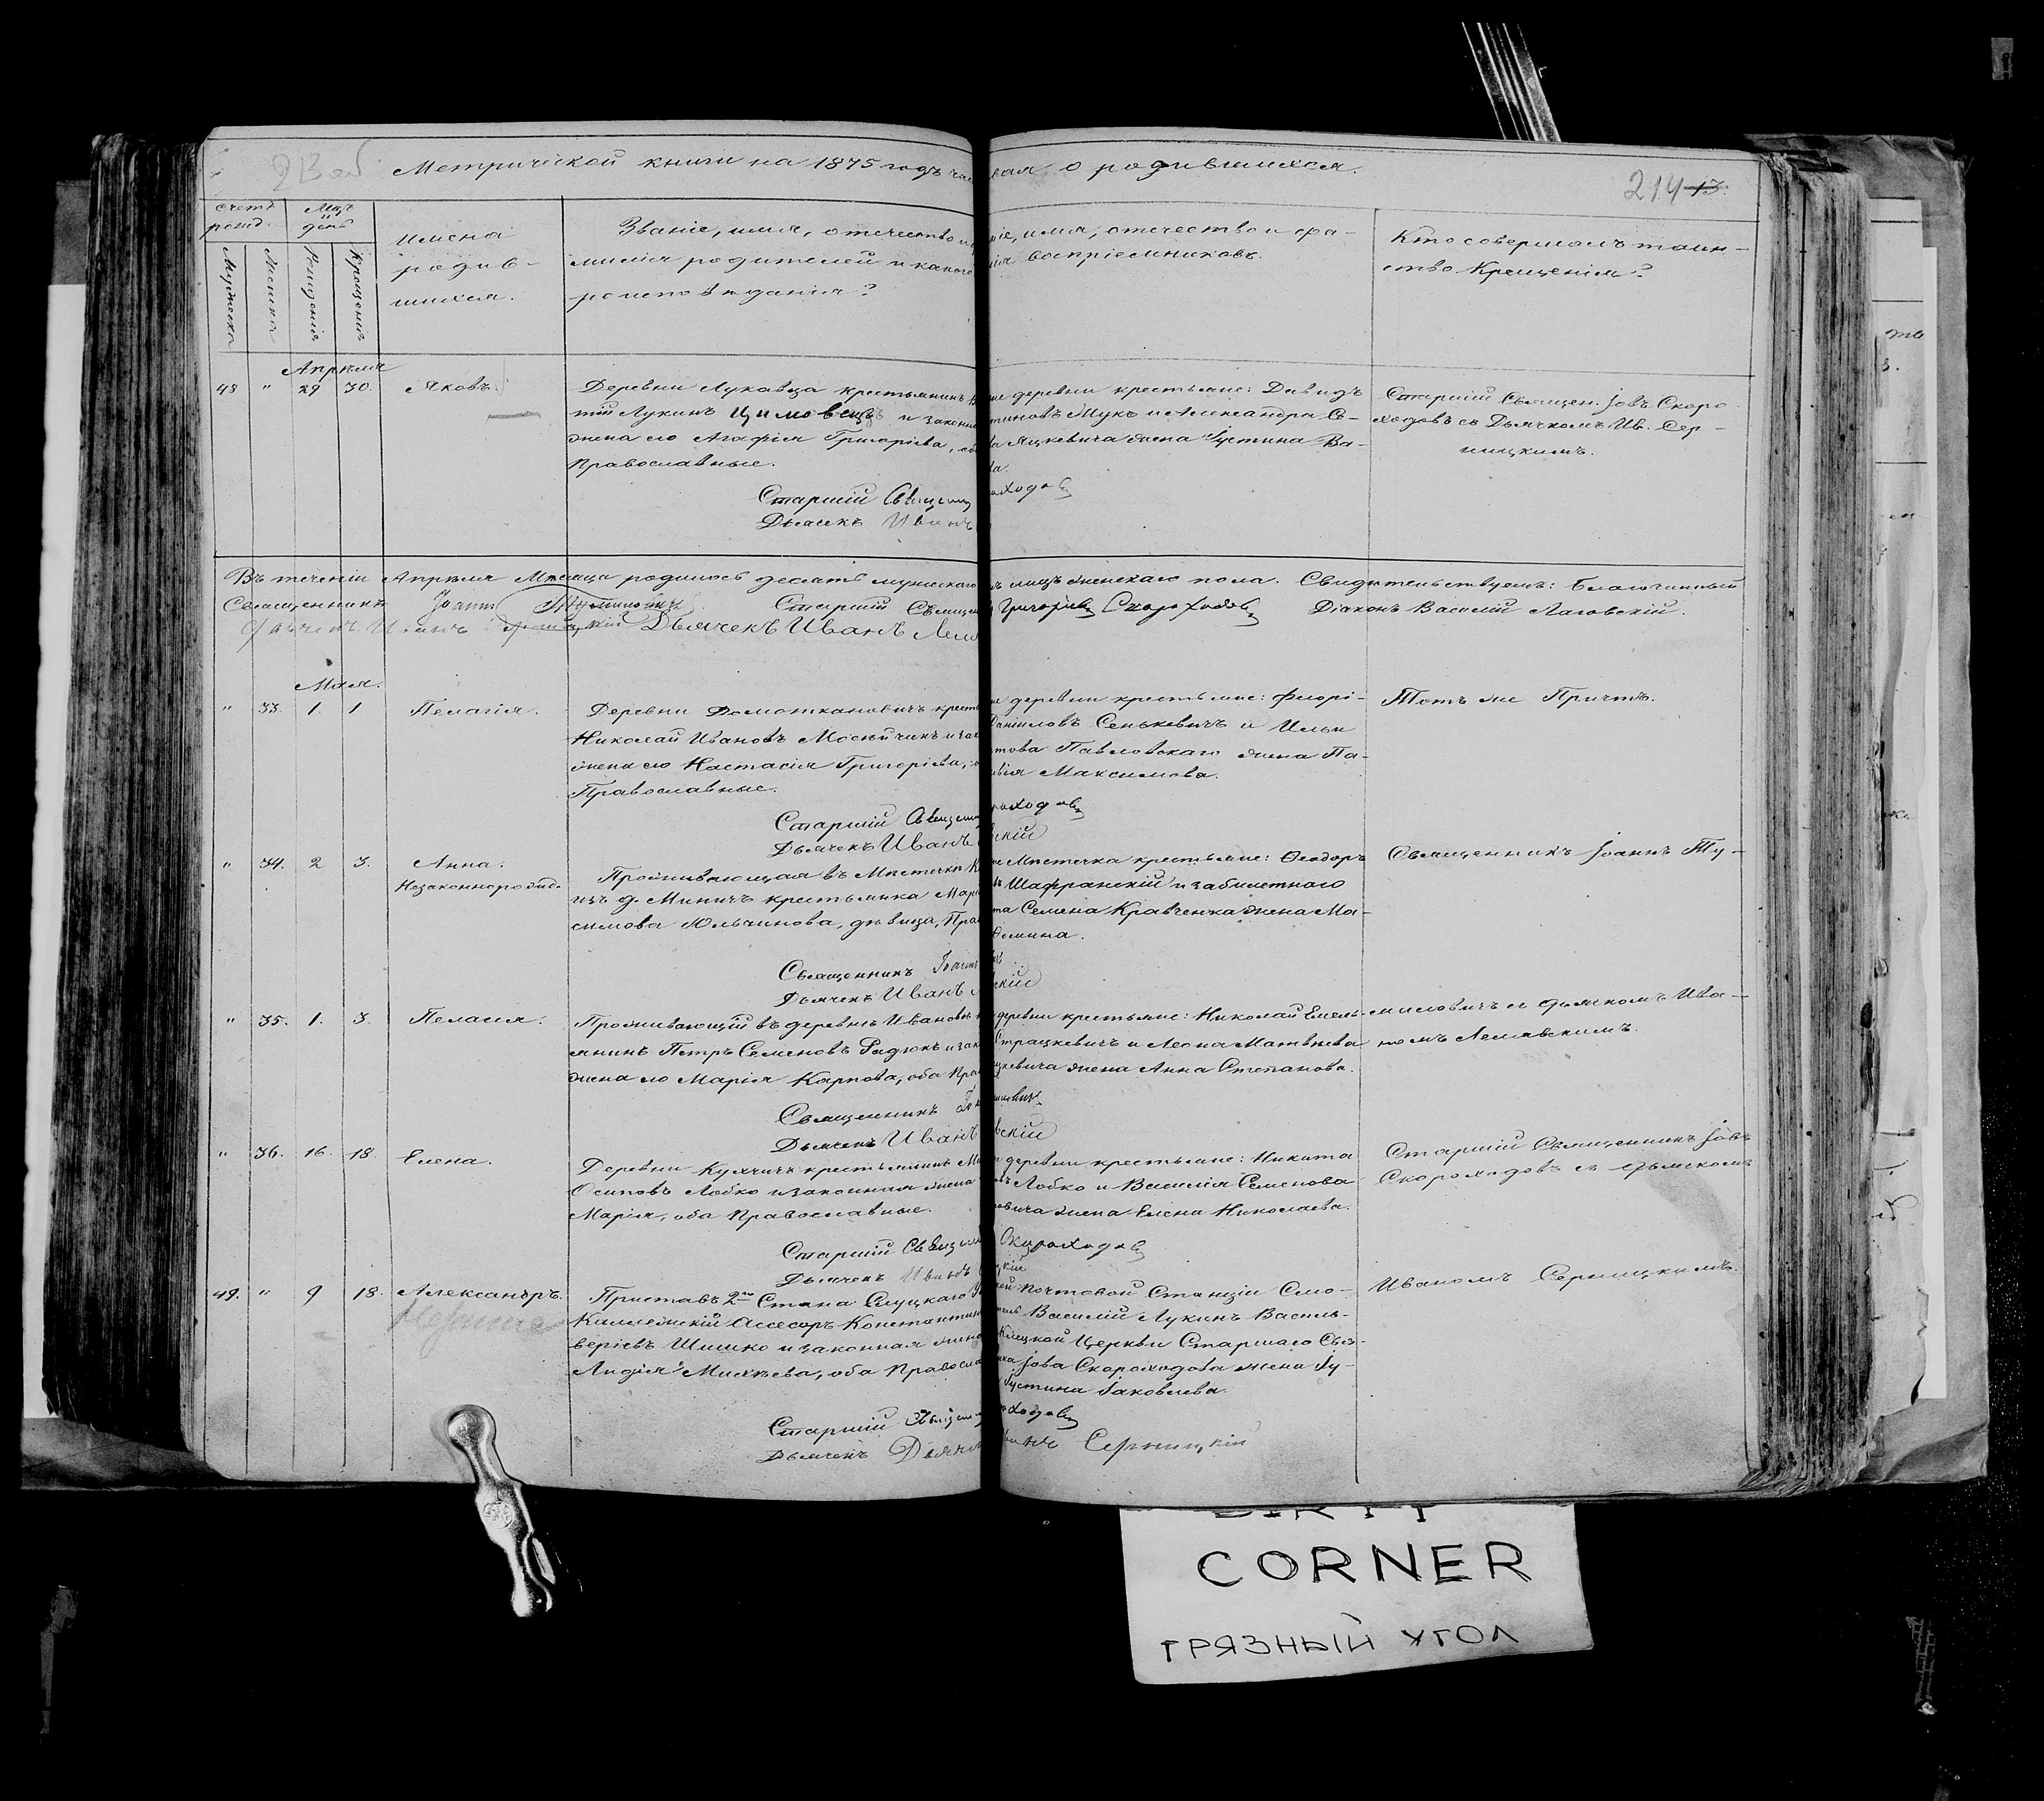 Метрической книги на 1875 годъ ча вая о родившихся.
214 13.
Счетъ рожд.
Мца и день
Мужеска
Женска
Рожденія
Крещенія
Имена
родив-
шихся.
Званіе, имя, отечество и
милія родителей и какого
роисповѣданія?
ніе, имя, отечество и фа-
воспріемниковъ.
Кто совершалъ таин-
ство Крещенія?
Апрѣля
48 " 29 30. Яковъ.
Деревни Лукавца крестьянинъ
тій Лукинъ Цимовецъ и законн
жена его Агафія Григорьева, об
Православные.
Старшій Священ
Дьячекъ Иванъ
же деревни крестьяне: Давидъ
тиновъ Жукъ и Александра С-
Яцкевича жена Іустина Ва-
ла.
роходовъ
Старшій Священ. Іовъ Скоро-
ходовъ съ Дьячкомъ Ив. Сер-
ницкимъ.
Въ теченіи Апрѣля Мѣсяца родилось десять мужескаго лицъ женскаго пола. Свидетельствуемъ: Благочинный
Священникъ Іоаннъ Старшій Священ Григорьевъ Скороходовъ Діаконъ Василій Лаговскій.
Дьячекъ Иванъ
Мая.
" 33. 1. 1 Пелагія.
Деревни Домоткановичъ крест
Николай Ивановъ Мосейчикъ и зак
жена его Настасія Григорьева,
Православные.
Старшій Священ
Дьячекъ Иванъ
же деревни крестьяне: Флорі-
Даніиловъ Сенькевичъ и Ильи
това Павловскаго жена Па-
Максимова.
роходовъ
скій
Тотъ же Причтъ.
" 34. 2 3. Анна.
Незаконнорожд.
Проживающая въ Мѣстечкѣ
изъ д. Миничъ крестьянка Мар
симова Юльчинова, дѣвица, Пра
Священникъ Іоан
Дьячекъ Иванъ
же Мѣстечка крестьяне: Ѳеодоръ
Шафранскій и забилетного
та Семена Кравченка жена Ма-
Фомина.
скій
Священникъ Іоаннъ Ту-
" 35. 1. 3. Пелагія.
Проживающій въ деревнѣ Ивановѣ
янинъ Петръ Семеновъ Радюкъ и зак
жена его Марія Карпова, оба Пра
Священникъ
Дьячекъ Иванъ
деревни крестьяне: Николай Емель-
Страцкевичъ и Леона Матвѣева
цкевича жена Анна Степанова.
миловичъ
вскій
миловичъ съ дьячкомъ Ива-
номъ Лемявскимъ.
" 36. 16. 18. Елена.
Деревни Кулчичъ крестьянинъ Ми
Осиповъ Лобко и законная жена
Марія, оба Православные.
Старшій Священ
Дьячекъ Иванъ
деревни крестьяне: Никита
Лобко и Василія Семенова
овича жена Елена Николаева.
Скороходовъ
цкій
Старшій Священникъ Іовъ
Скороходовъ съ дьячкомъ
49. " 9 18. Александръ.
Приставъ 2го Стана Слуцкаго
Коллежскій Асессоръ Константин
верьевъ Шишко и законная жена
Лидія Михѣева, оба Правосла
Старшій Священ
Дьячекъ
кой почтовой Станціи Смо-
тель Василій Лукинъ Василь-
Клецкой Церкви Старшаго Свя-
ика Іова Скороходова жена Іу-
Іустина Іаковлева.
роходовъ
Иванъ Серницкій
Иваномъ Серницкимъ.
CORNER
ГРЯЗНЫЙ УГОЛ